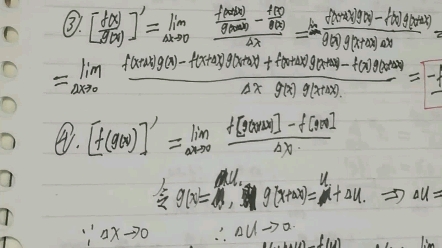 ③. [f(x)/g(x)]' = lim Δx→0 (f(x+Δx)/g(x+Δx) - f(x)/g(x))/Δx = lim (f(x+Δx)g(x) - f(x)g(x+Δx))/(g(x) g(x+Δx) Δx) =
= lim Δx→0 (f(x+Δx)g(x) - f(x+Δx)g(x+Δx) + f(x+Δx)g(x+Δx) - f(x)g(x+Δx))/(Δx g(x) g(x+Δx)) = -f
④. [f(g(x))]' = lim Δx→0 (f[g(x+Δx)] - f[g(x)])/Δx.
令 g(x)= u, g(x+Δx)= u + Δu. ⇒ Δu =
∵ Δx→0 ∴ Δu→0